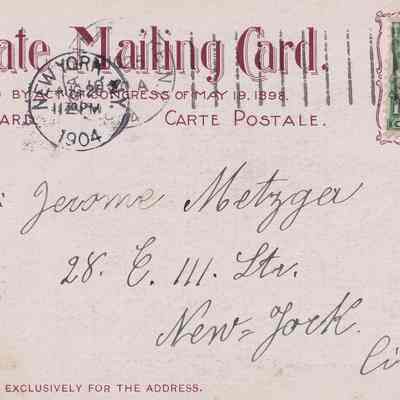 ate Mailing Card.
BY ACT OF CONGRESS OF MAY 19, 1898.
CARD
CARTE POSTALE.
NEW YORK, N.Y.
11 PM
1904
Jerome Metzger
28. E. 111. Str.
New-York.
Ci
EXCLUSIVELY FOR THE ADDRESS.